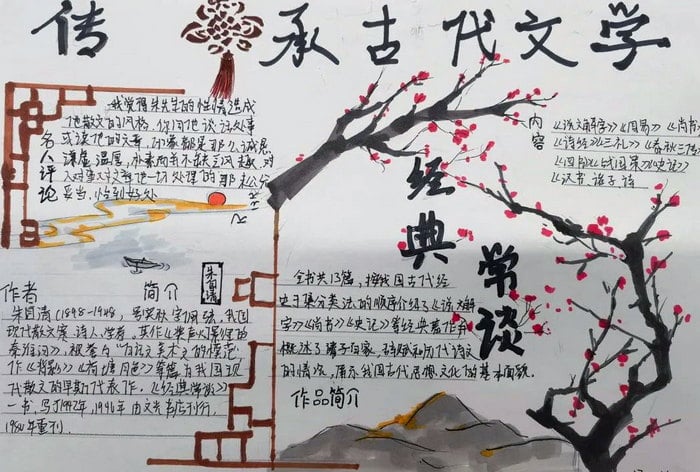 传承古代文学
名人评论
我觉得朱先生的性情造成
他散文的风格。你同他谈话处事
或读他的文章,印象都是那么诚恳、
谦虚、温厚、朴素而并不缺乏风趣。对
人对事对文章他一切处理的那末公允
妥当,恰到好处
内容
《说文解字》《周易》《尚书》
《诗经》《三礼》《春秋三传》
《四书》《战国策》《史记》
《汉书》诸子 诗
经典常谈
朱自清
作者 简介
朱自清(1898-1948,
现代散文家、诗人、学者,其作《桨声灯影里的
秦淮河》,被誉为“白话美术文的模范”
作《背影》《荷塘月色》等篇为我国现
代散文的早期代表作,《经典常谈》
一书,写于1942年,1946年由文光书店刊行,
1980年重刊.
全书共13篇,按我国古代经
史子集分类法的顺序介绍了《说文解
字》《尚书》《史记》等经典著作并
概述了诸子百家、辞赋和历代诗文
的情况,展示我国古代思想文化的基本面貌.
作品简介